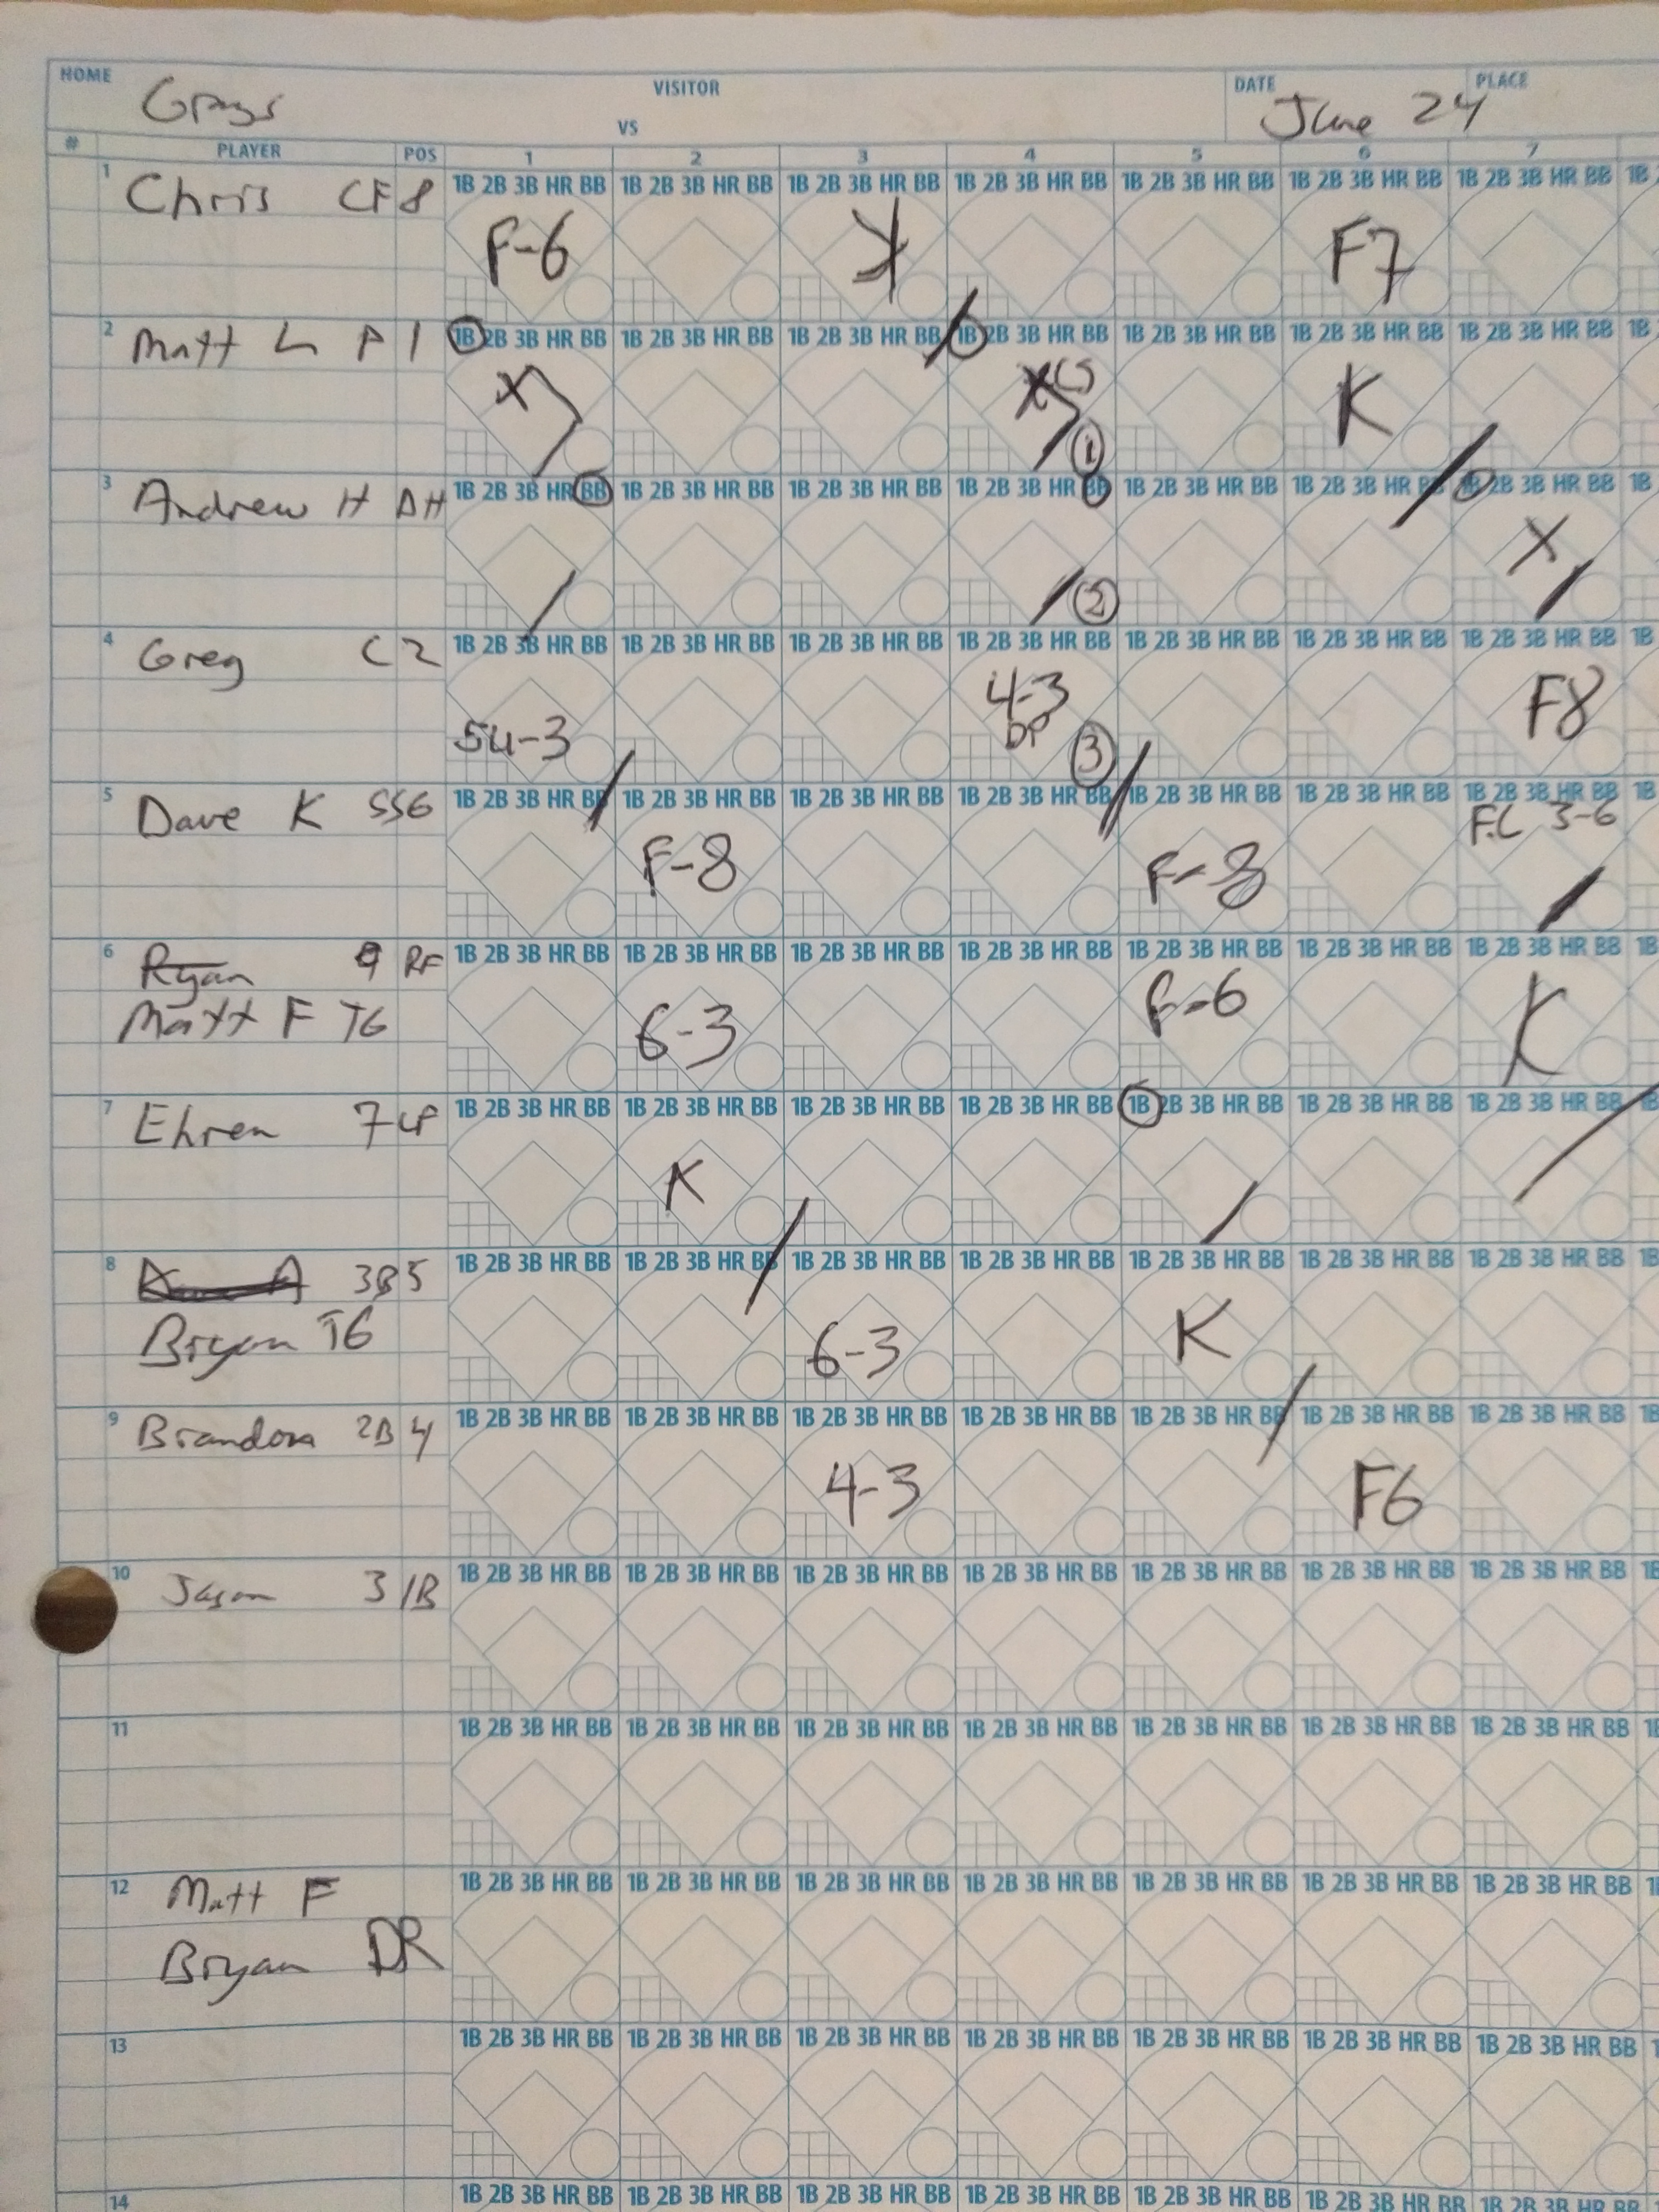 HOME Grays VISITOR VS DATE June 24 PLACE
# PLAYER POS 1 2 3 4 5 6 7
1 Chris CF 8 1B 2B 3B HR BB 1B 2B 3B HR BB 1B 2B 3B HR BB 1B 2B 3B HR BB 1B 2B 3B HR BB 1B 2B 3B HR BB 1B 2B 3B HR BB 1B
F-6 K F7
2 Matt L P 1 1B 2B 3B HR BB 1B 2B 3B HR BB 1B 2B 3B HR BB 1B 2B 3B HR BB 1B 2B 3B HR BB 1B 2B 3B HR BB 1B 2B 3B HR BB 1B
X X CS 1 K
3 Andrew H DH 1B 2B 3B HR BB 1B 2B 3B HR BB 1B 2B 3B HR BB 1B 2B 3B HR BB 1B 2B 3B HR BB 1B 2B 3B HR BB 1B 2B 3B HR BB 1B
2 X
4 Greg C 2 1B 2B 3B HR BB 1B 2B 3B HR BB 1B 2B 3B HR BB 1B 2B 3B HR BB 1B 2B 3B HR BB 1B 2B 3B HR BB 1B 2B 3B HR BB 1B
54-3 4-3 DP 3 F8
5 Dave K SS6 1B 2B 3B HR BB 1B 2B 3B HR BB 1B 2B 3B HR BB 1B 2B 3B HR BB 1B 2B 3B HR BB 1B 2B 3B HR BB 1B 2B 3B HR BB 1B
F-8 F-8 F.C 3-6
6 Ryan 9 RF 1B 2B 3B HR BB 1B 2B 3B HR BB 1B 2B 3B HR BB 1B 2B 3B HR BB 1B 2B 3B HR BB 1B 2B 3B HR BB 1B 2B 3B HR BB 1B
Matt F T6 6-3 F-6 K
7 Ehren 7 LF 1B 2B 3B HR BB 1B 2B 3B HR BB 1B 2B 3B HR BB 1B 2B 3B HR BB 1B 2B 3B HR BB 1B 2B 3B HR BB 1B 2B 3B HR BB 1B
K
8 3B 5 1B 2B 3B HR BB 1B 2B 3B HR BB 1B 2B 3B HR BB 1B 2B 3B HR BB 1B 2B 3B HR BB 1B 2B 3B HR BB 1B 2B 3B HR BB 1B
Bryan T6 6-3 K
9 Brandon 2B 4 1B 2B 3B HR BB 1B 2B 3B HR BB 1B 2B 3B HR BB 1B 2B 3B HR BB 1B 2B 3B HR BB 1B 2B 3B HR BB 1B 2B 3B HR BB 1B
4-3 F6
10 Jason 3 1B 1B 2B 3B HR BB 1B 2B 3B HR BB 1B 2B 3B HR BB 1B 2B 3B HR BB 1B 2B 3B HR BB 1B 2B 3B HR BB 1B 2B 3B HR BB 1B
11 1B 2B 3B HR BB 1B 2B 3B HR BB 1B 2B 3B HR BB 1B 2B 3B HR BB 1B 2B 3B HR BB 1B 2B 3B HR BB 1B 2B 3B HR BB 1B
12 Matt F 1B 2B 3B HR BB 1B 2B 3B HR BB 1B 2B 3B HR BB 1B 2B 3B HR BB 1B 2B 3B HR BB 1B 2B 3B HR BB 1B 2B 3B HR BB
Bryan DR
13 1B 2B 3B HR BB 1B 2B 3B HR BB 1B 2B 3B HR BB 1B 2B 3B HR BB 1B 2B 3B HR BB 1B 2B 3B HR BB 1B 2B 3B HR BB
14 1B 2B 3B HR BB 1B 2B 3B HR BB 1B 2B 3B HR BB 1B 2B 3B HR BB 1B 2B 3B HR BB 1B 2B 3B HR BB 1B 2B 3B HR BB